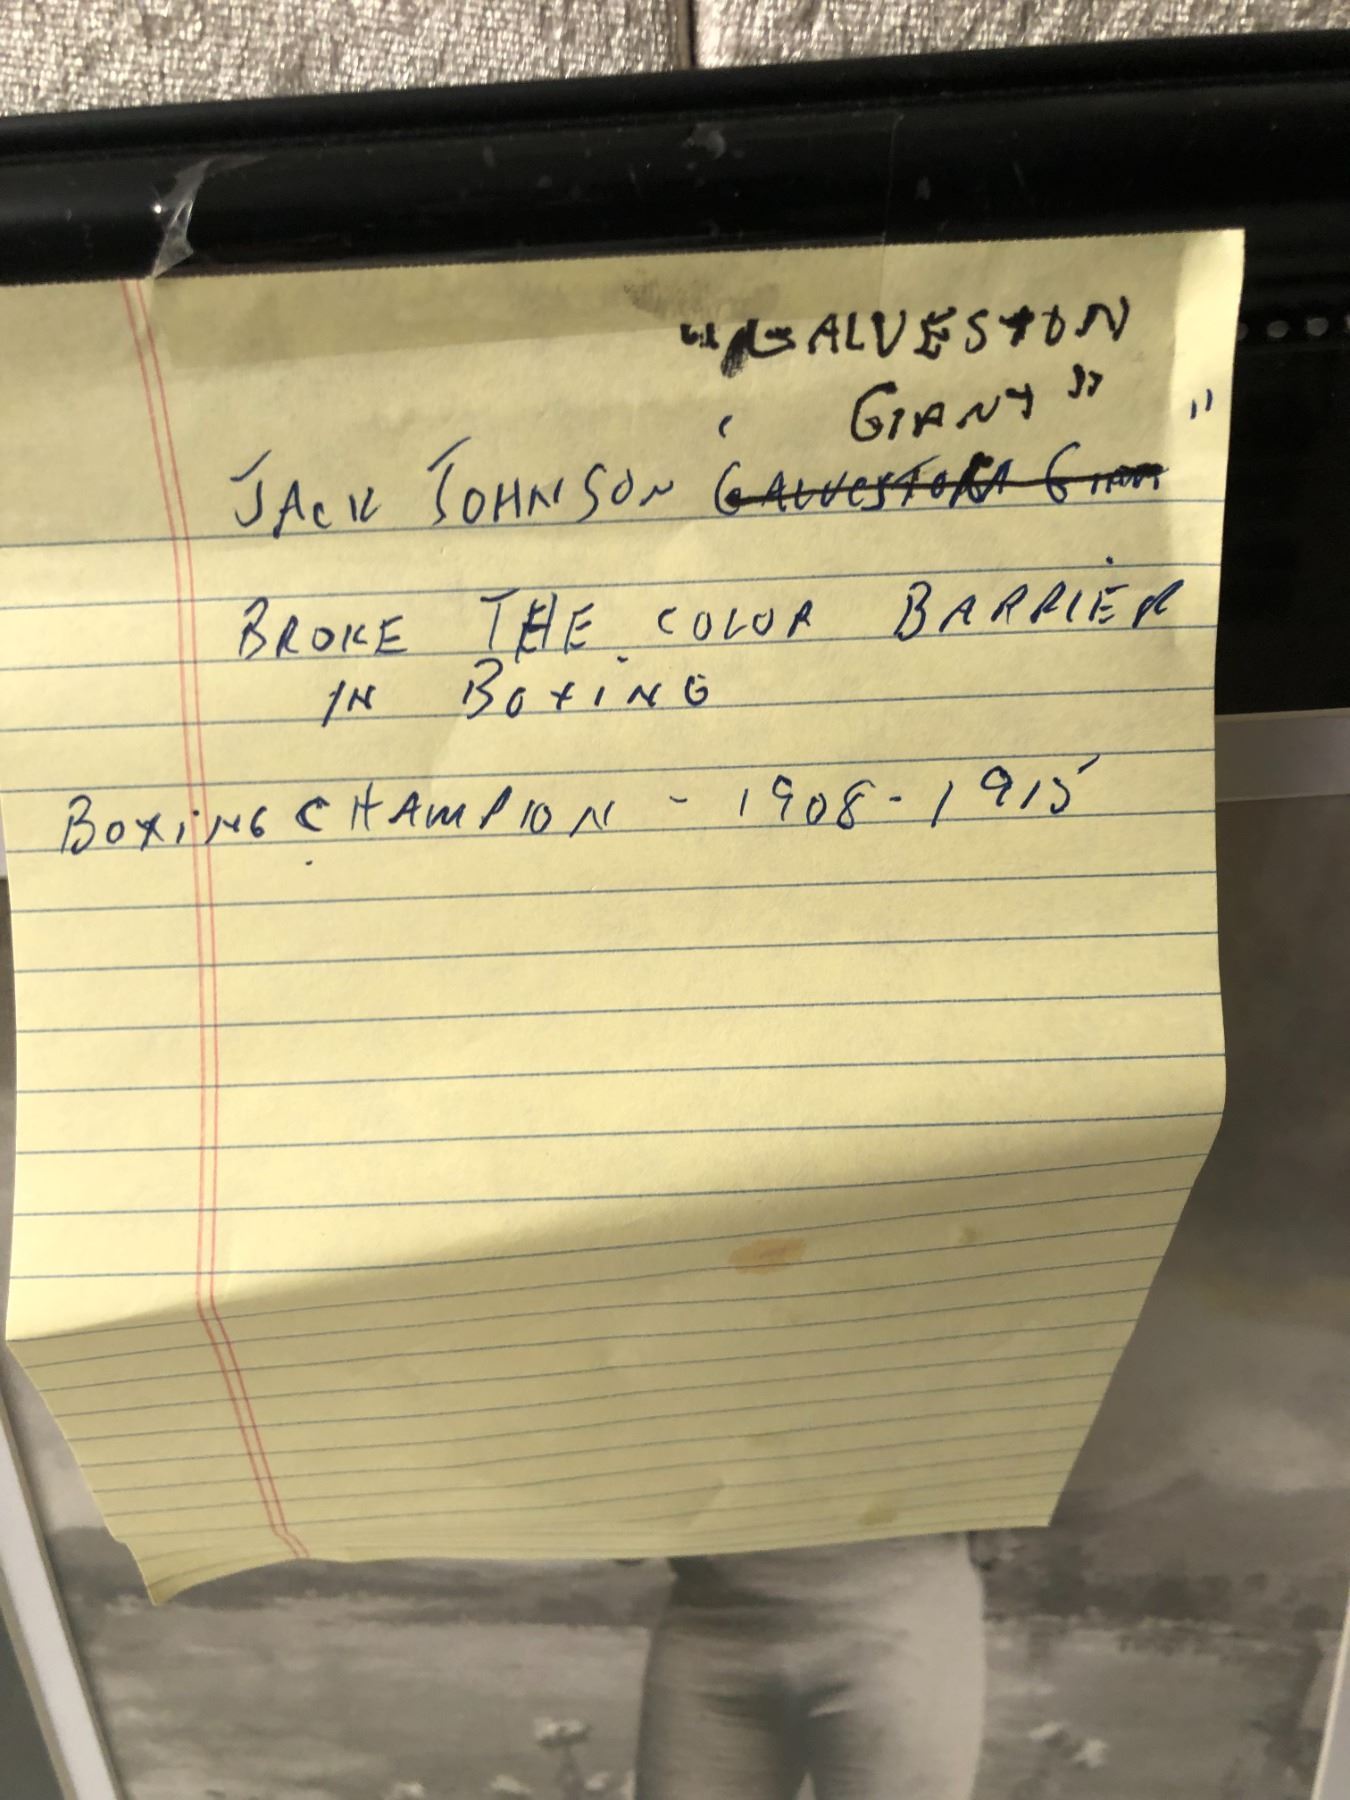 "GALVESTON
GIANT"
JACK JOHNSON "GALVESTON GIANT"
BROKE THE COLOR BARRIER
IN BOXING
BOXING CHAMPION - 1908-1915